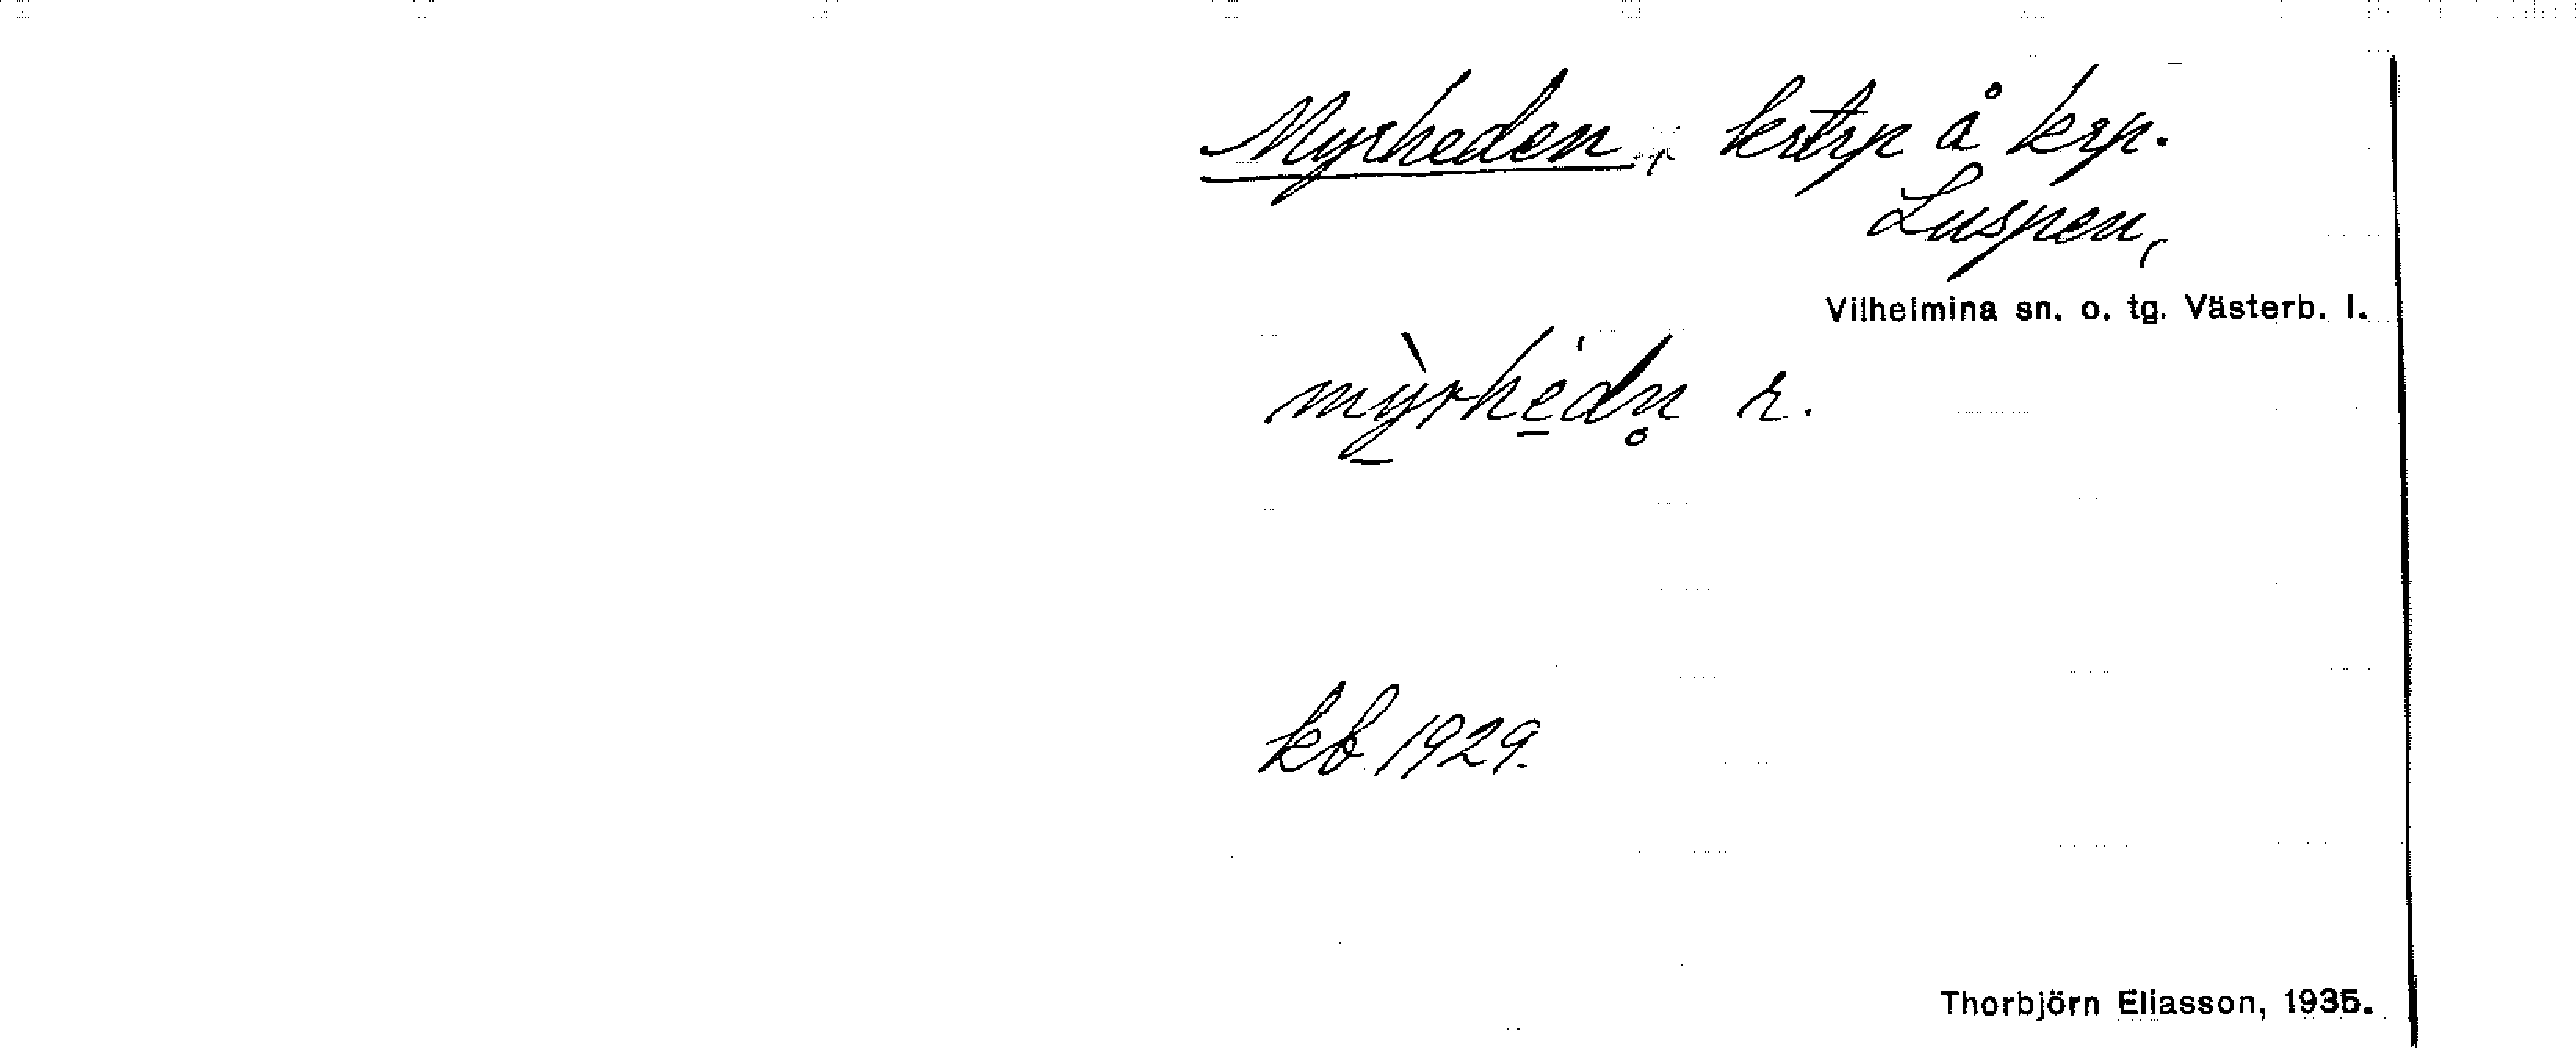 Myrheden, krtrp å krp.
Luspen,
Vilhelmina sn. o. tg. Västerb. l.
mỳ̠rhe̠ ́dn̥ r.
kb. 1929.
Thorbjörn Eliasson, 1935.